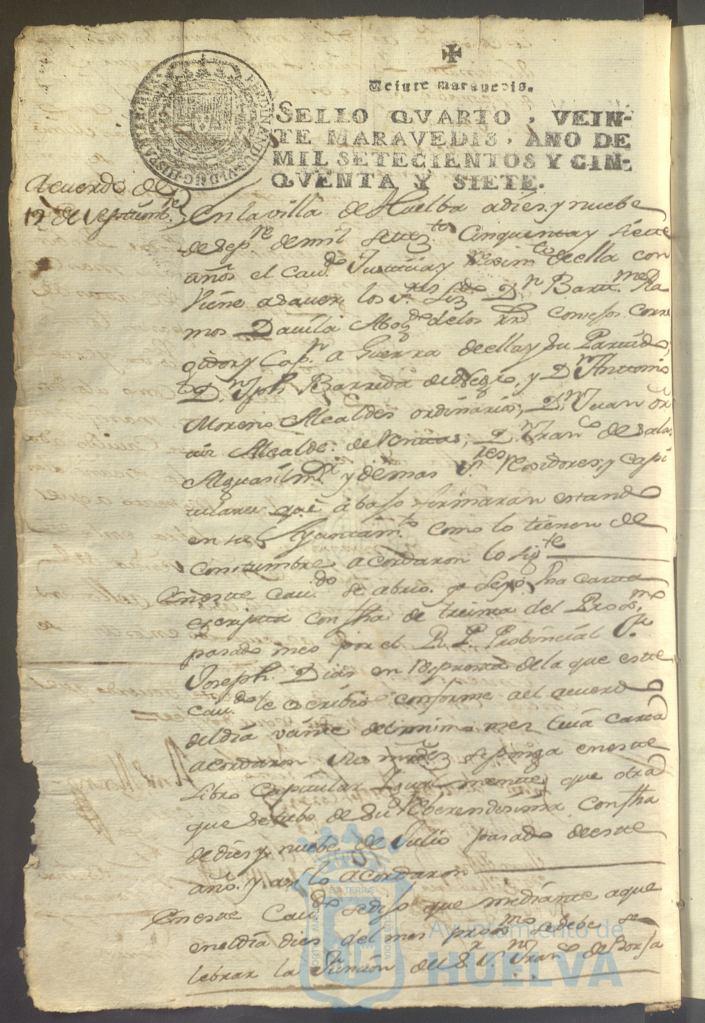 Veinte maravedis.
SELLO QVARTO, VEIN-
TE MARAVEDIS, AÑO DE
MIL SETECIENTOS Y CIN-
QVENTA Y SIETE.
Acuerdo de
19 de Septiembre
En la villa de Huelba a dies y nuebe
de Sepre de mil setezos Cinquenta y siete
años el Cavdo Justicia y Reximto de ella con
viene a saver los Sres Lizdo Dn Bartme Ra
mos Davila Abogdo de los Rs Consejos Corre
gidor y Capn a Guerra de ella y su Partido
Dn Jph Barreda y Dn Antonio
Moreno Alcaldes ordinarios, Dn Juan
Alcalde de Dn Franco de Sala
Alguasil mr y demas Sres Rexidores y capi
tulares que abajo firmaran estando
en su Ayuntamto como lo tienen de
Costumbre acordaron lo sigte
En este Cavdo se abrio y leyó una carta
escripta con fha de treinta del Proxmo
pasado mes por el R. P. Provincial Fr
Joseph Dias en respuesta de la que este
Cavdo le escribió conforme al acuerdo
del dia vainte del mismo mes cuia carta
acordaron sus mrds se ponga en este
Libro Capitular Igualmente que otra
que se tubo de su Reberendisima con fha
de dies y nuebe de Julio pasado de este
año y asi lo acordaron
En este Cavdo se dijo que mediante a que
en el dia dies del mes proxmo se debe se
lebrar la funcion del Sr Sn Franco de Borja
Ayuntamiento de
HUELVA